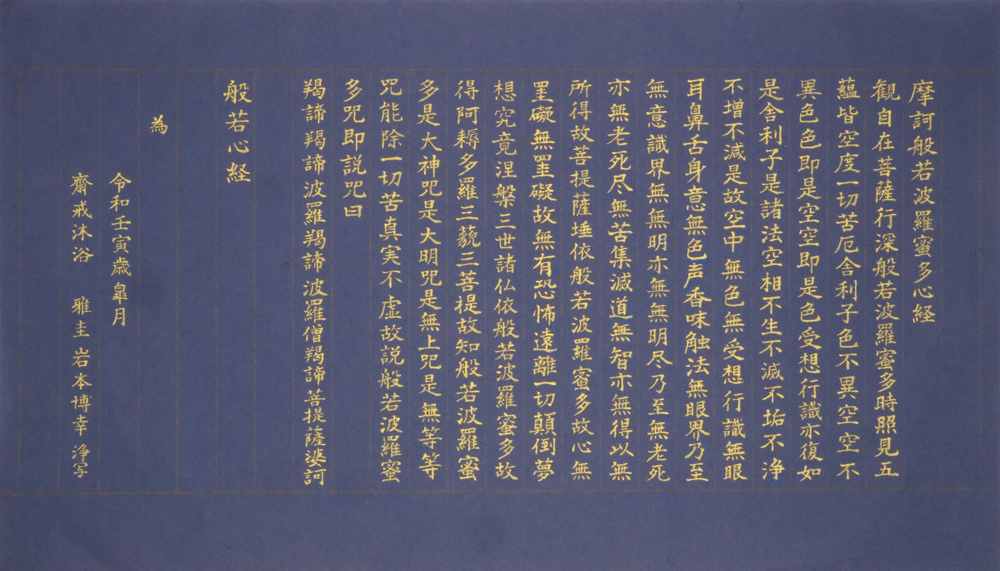 摩訶般若波羅蜜多心経
観自在菩薩行深般若波羅蜜多時照見五
蘊皆空度一切苦厄舎利子色不異空空不
異色色即是空空即是色受想行識亦復如
是舎利子是諸法空相不生不滅不垢不浄
不増不減是故空中無色無受想行識無眼
耳鼻舌身意無色声香味触法無眼界乃至
無意識界無無明亦無無明尽乃至無老死
亦無老死尽無苦集滅道無智亦無得以無
所得故菩提薩埵依般若波羅蜜多故心無
罣礙無罣礙故無有恐怖遠離一切顛倒夢
想究竟涅槃三世諸仏依般若波羅蜜多故
得阿耨多羅三藐三菩提故知般若波羅蜜
多是大神呪是大明呪是無上呪是無等等
呪能除一切苦真実不虚故説般若波羅蜜
多呪即説呪曰
羯諦羯諦波羅羯諦波羅僧羯諦菩提薩婆訶
般若心経
為
令和壬寅歳皐月
齋戒沐浴 雅圭岩本博幸浄写